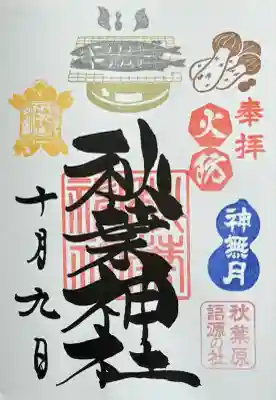 奉拝
火防
神無月
秋葉原
語源の社
秋葉神社
十月九日